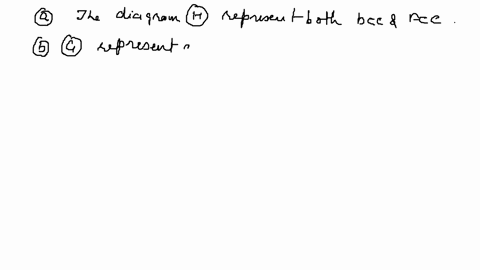 ⓐ The diagram Ⓗ represent both bcc & Acc.
ⓑ Ⓖ represent